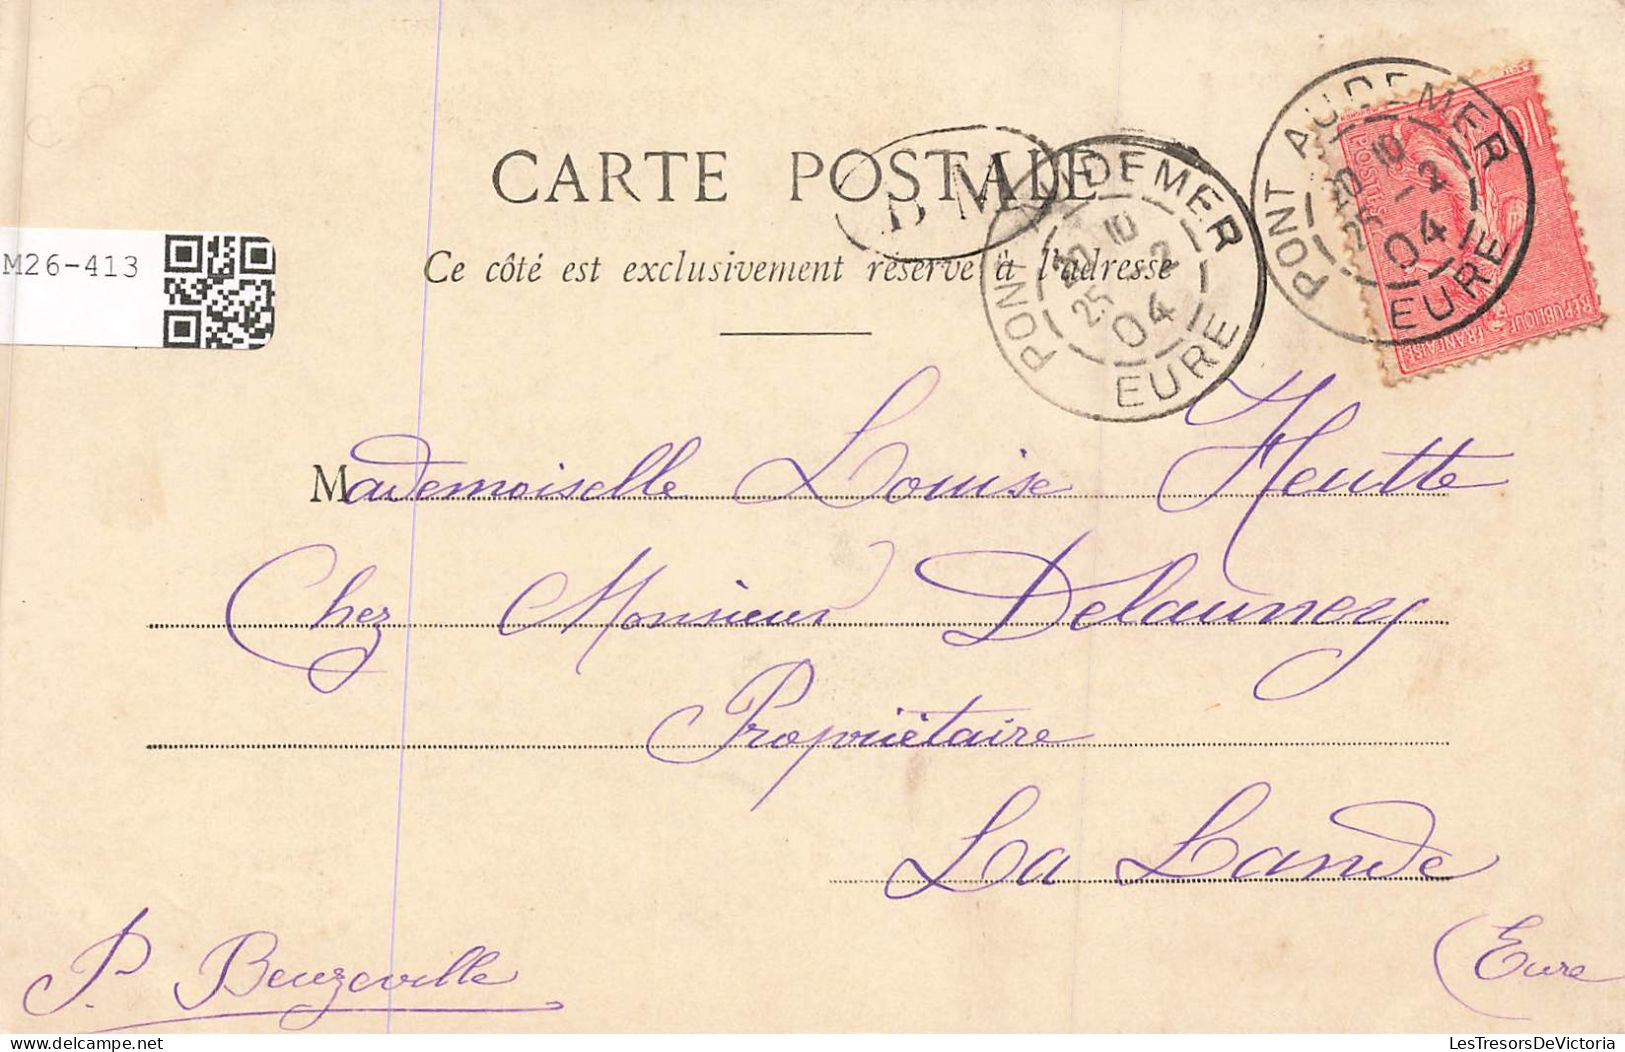 CARTE POSTALE
BM
Ce côté est exclusivement réservé à l'adresse
M26-413
PONT AUDEMER
25 - 2
04
EURE
PONT AUDEMER
25 - 2
04
EURE
10
POSTES
RÉPUBLIQUE FRANÇAISE
Mademoiselle Louise Heutte
Chez Monsieur Delauney
Propriétaire
La Lande
P. Beuzeville
(Eure
LesTresorsDeVictoria